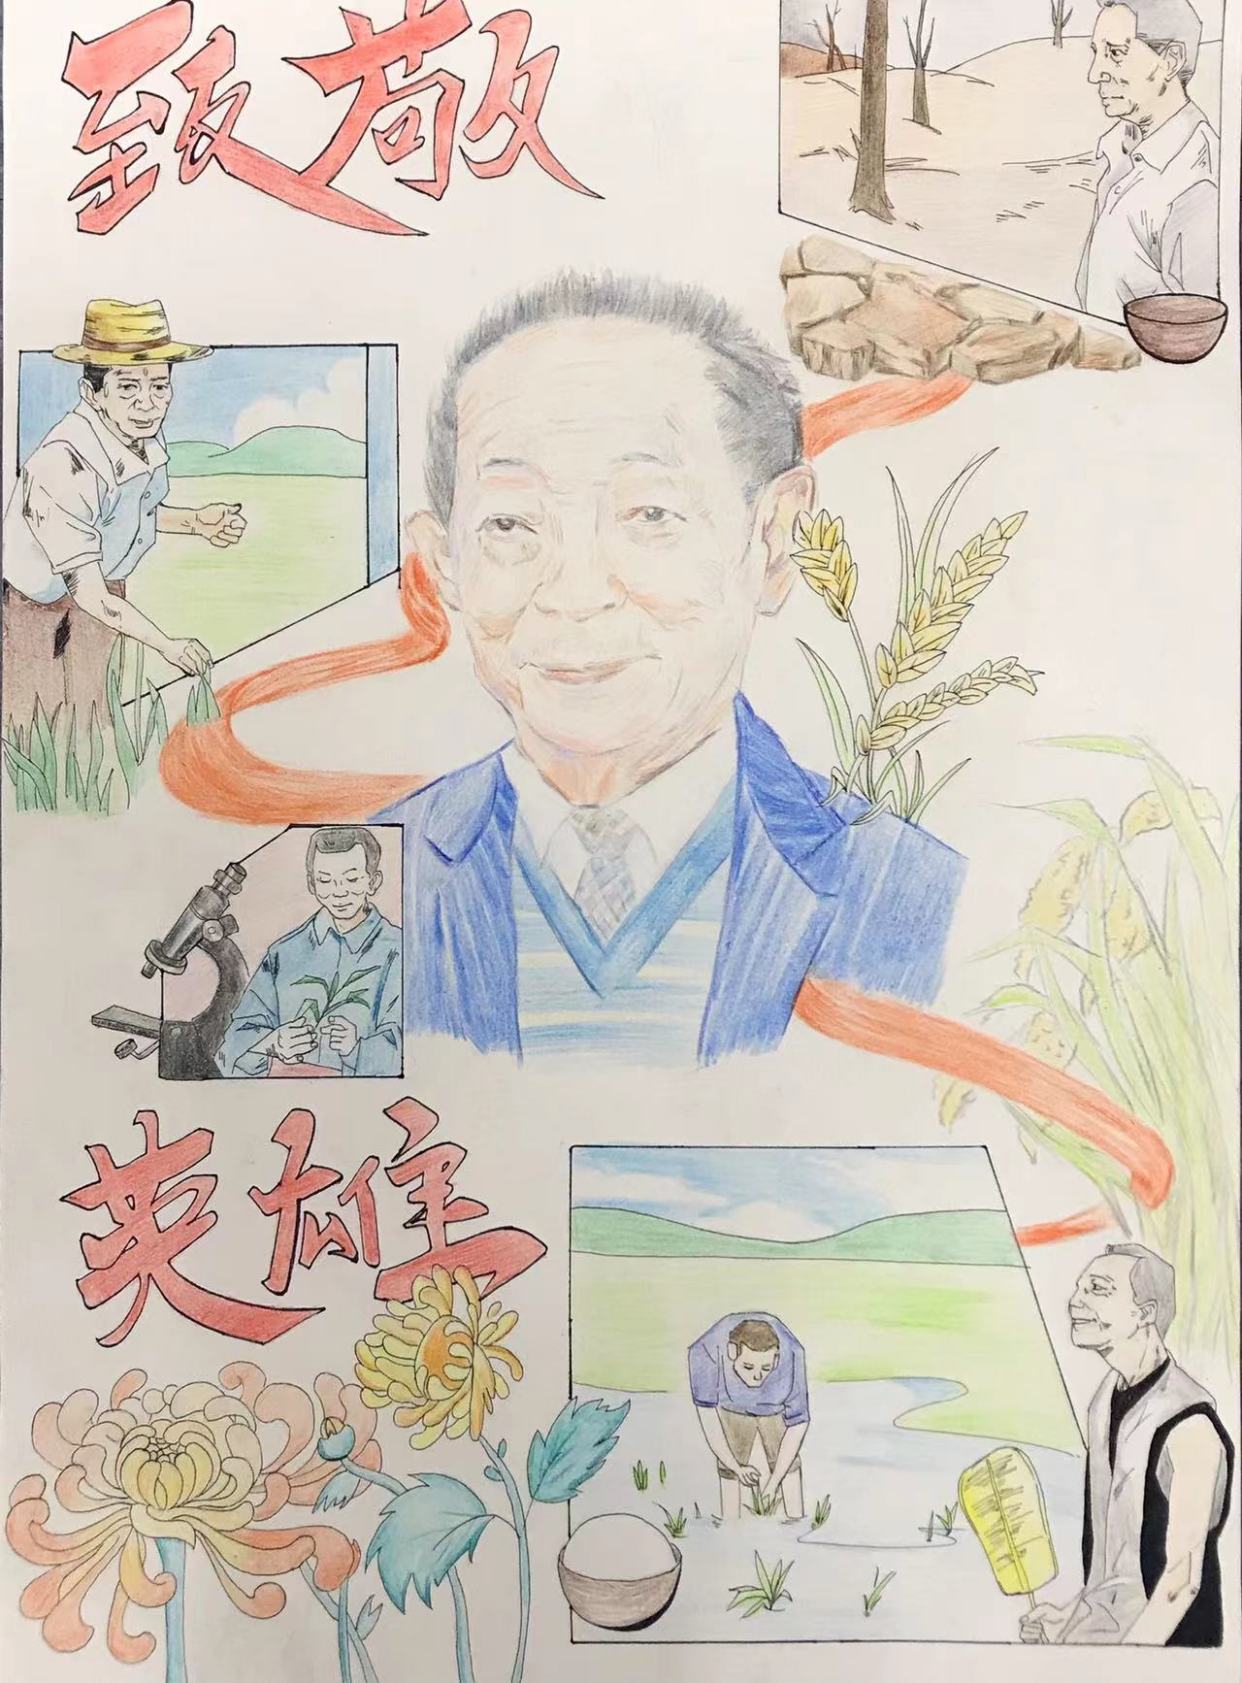 致敬
英雄